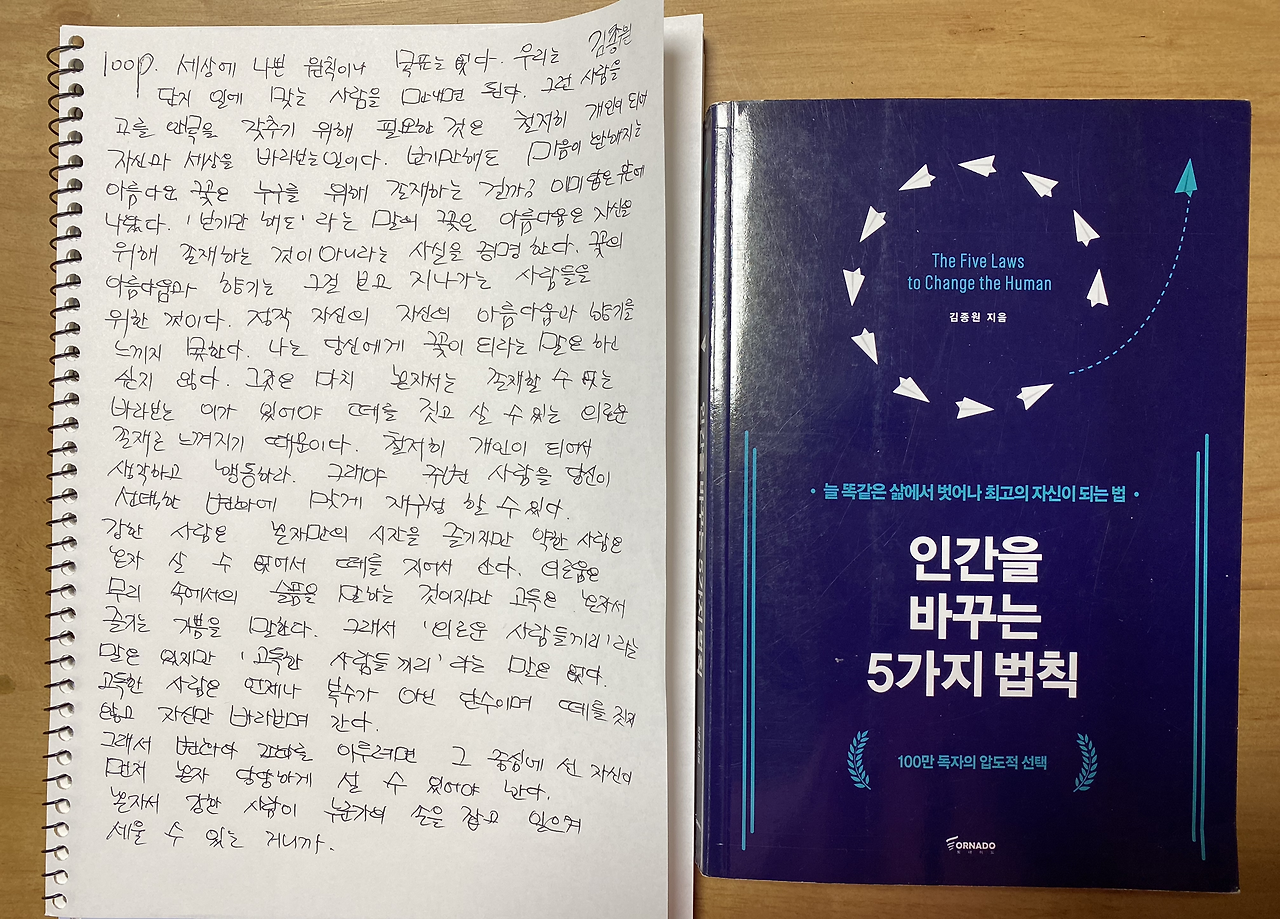 100p. 세상에 나쁜 원칙이나 목표는 없다. 우리는 김종원
단지 일에 맞는 사람을 만나면 된다. 그런 사람을
고를 안목을 갖추기 위해 필요한 것은 철저히 개인이 되어
자신과 세상을 바라보는 일이다. 보기만해도 마음이 환해지는
아름다운 꽃은 누구를 위해 존재하는 걸까? 이미 답은 문에
나왔다. '보기만 해도' 라는 말의 꽃은 아름다움은 자신을
위해 존재하는 것이 아니라는 사실을 증명한다. 꽃의
아름다움과 향기는 그걸 보고 지나가는 사람들을
위한 것이다. 정작 자신의 자신의 아름다움과 향기를
느끼지 못한다. 나는 당신에게 꽃이 되라는 말은 하진
싶지 않다. 그것은 마치 혼자서는 존재할 수 없는
바라보는 이가 있어야 떼를 짓고 살 수 있는 외로운
존재로 느껴지기 때문이다. 철저히 개인이 되어서
생각하고 행동하라. 그래야 주변 사람을 당신이
선택한 변화에 맞게 재구성 할 수 있다.
강한 사람은 혼자만의 시간을 즐기지만 약한 사람은
혼자 살 수 없어서 떼를 지어서 산다. 외로움은
무리 속에서의 슬픔을 말하는 것이지만 고독은 혼자서
즐기는 기쁨을 말한다. 그래서 '외로운 사람들끼리' 라는
말은 있지만 '고독한 사람들끼리' 라는 말은 없다.
고독한 사람은 언제나 복수가 아닌 단수이며 떼를 짓지
않고 자신만 바라보며 간다.
그래서 변화와 을 이루려면 그 중심에 선 자신이
먼저 혼자 당당하게 살 수 있어야 한다.
혼자서 강한 사람이 누군가의 손을 잡고 일으켜
세울 수 있는 거니까.
The Five Laws
to Change the Human
김종원 지음
• 늘 똑같은 삶에서 벗어나 최고의 자신이 되는 법 •
인간을
바꾸는
5가지 법칙
100만 독자의 압도적 선택
TORNADO